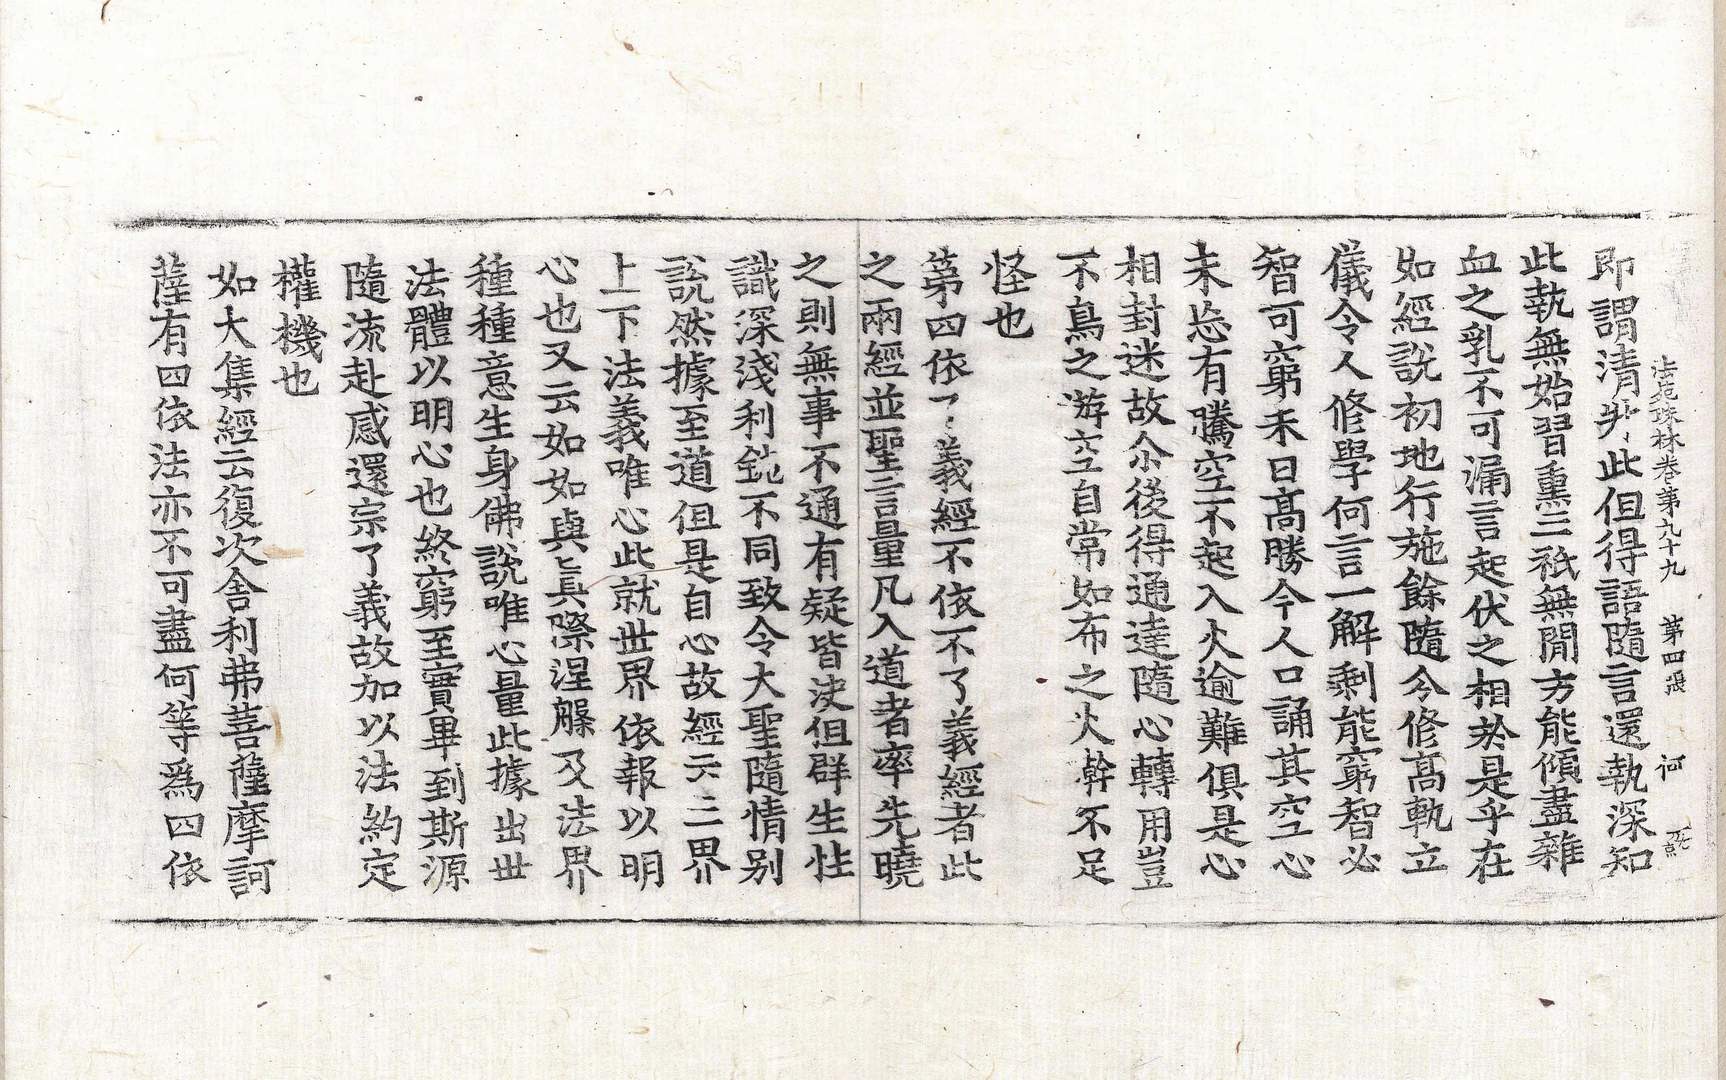 法苑珠林卷第九十九 第四張 河
即謂清升此但得語隨言還執深知
此執無始習熏三祇無閒方能傾盡雜
血之乳不可漏言起伏之相於是乎在
如經說初地行施餘隨分修高軌立
儀令人修學何言一解剩能窮智必
智可窮未曰高勝今人口誦其空心
未忘有騰空不起入火逾難俱是心
相封迷故尒後得通達隨心轉用豈
不鳥之游空自常如布之火幹不足
怪也
第四依了義經不依不了義經者此
之兩經並聖言量凡入道者率先曉
之則無事不通有疑皆決但群生性
識深淺利鈍不同致令大聖隨情別
說然據至道但是自心故經云三界
上下法義唯心此就世界依報以明
心也又云如如與眞際涅槃及法界
種種意生身佛說唯心量此據出世
法體以明心也終窮至實畢到斯源
隨流赴感還宗了義故加以法約定
權機也
如大集經云復次舍利弗菩薩摩訶
薩有四依法亦不可盡何等爲四依